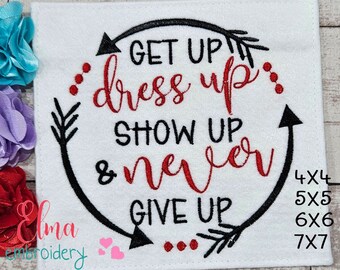 GET UP
dress up
SHOW UP
& never
GIVE UP
4X4
5X5
6X6
7X7
Elma
embroidery